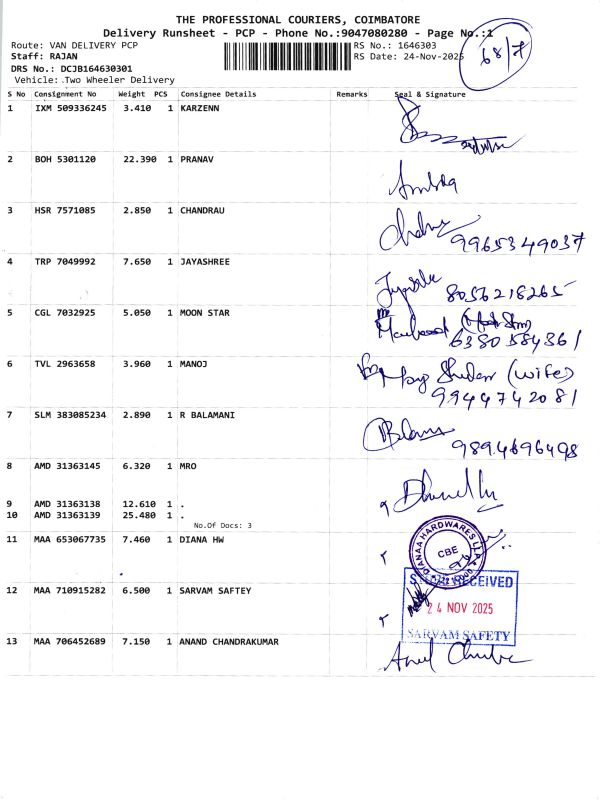 THE PROFESSIONAL COURIERS, COIMBATORE
Delivery Runsheet - PCP - Phone No.:9047080280 - Page No.:1
68/7
Route: VAN DELIVERY PCP
RS No.: 1646303
Staff: RAJAN
RS Date: 24-Nov-2025
DRS No.: DCJB164630301
Vehicle: Two Wheeler Delivery
S No Consignment No Weight PCS Consignee Details Remarks Seal & Signature
1 IXM 509336245 3.410 1 KARZENN
2 BOH 5301120 22.390 1 PRANAV
3 HSR 7571085 2.850 1 CHANDRAU
9965349037
4 TRP 7049992 7.650 1 JAYASHREE
8056218265
5 CGL 7032925 5.050 1 MOON STAR
6380584361
6 TVL 2963658 3.960 1 MANOJ
(wife)
9944742081
7 SLM 383085234 2.890 1 R BALAMANI
9894696498
8 AMD 31363145 6.320 1 MRO
9 AMD 31363138 12.610 1 .
10 AMD 31363139 25.480 1 .
No.Of Docs: 3
11 MAA 653067735 7.460 1 DIANA HW
DIANAA HARDWARES LLP
CBE
12 MAA 710915282 6.500 1 SARVAM SAFTEY
RECEIVED
24 NOV 2025
SARVAM SAFETY
13 MAA 706452689 7.150 1 ANAND CHANDRAKUMAR